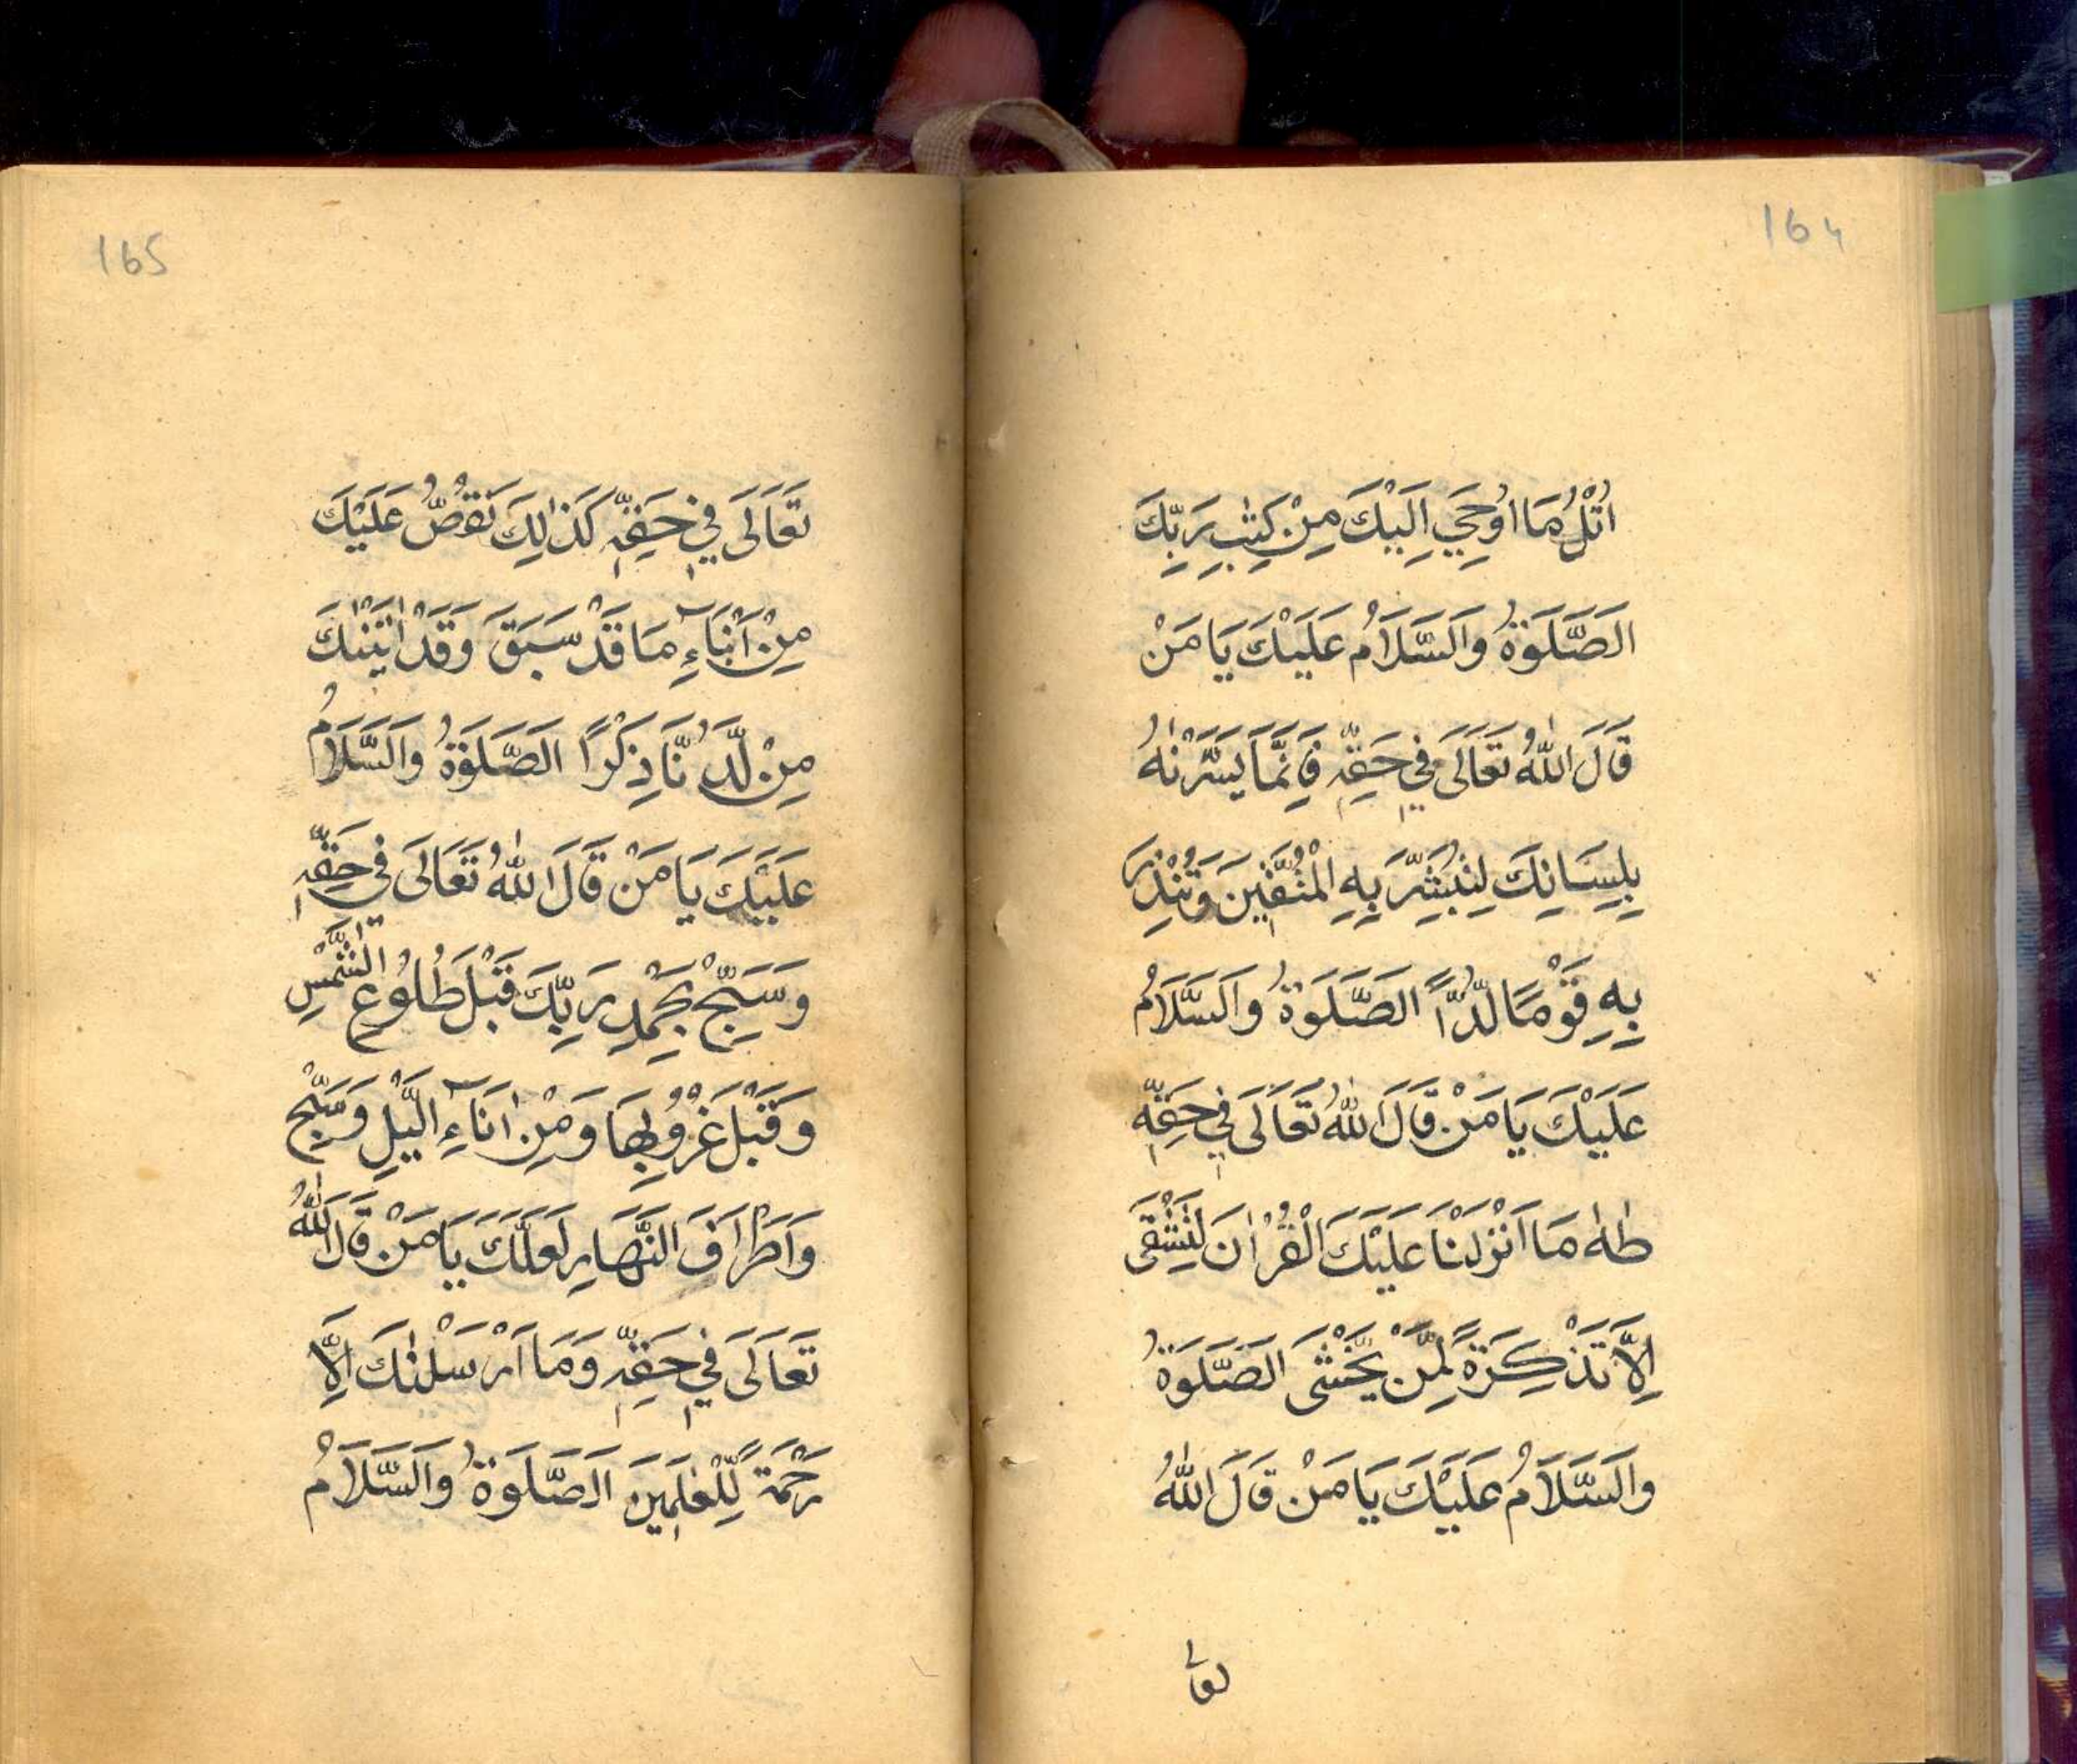 164
اُتْلُ مَا اُوحِيَ اِلَيْكَ مِنْ كِتٰبِ رَبِّكَ
اَلصَّلَوةُ وَالسَّلَامُ عَلَيْكَ يَا مَنْ
قَالَ اللّٰهُ تَعَالَى فِي حَقِّهِ فَاِنَّمَا يَسَّرْنٰهُ
بِلِسَانِكَ لِتُبَشِّرَ بِهِ الْمُتَّقٖينَ وَتُنْذِرَ
بِهِ قَوْمًا لُدًّا اَلصَّلَوةُ وَالسَّلَامُ
عَلَيْكَ يَا مَنْ قَالَ اللّٰهُ تَعَالَى فِي حَقِّهِ
طٰهٰ مَا اَنْزَلْنَا عَلَيْكَ الْقُرْاٰنَ لِتَشْقَى
اِلَّا تَذْكِرَةً لِمَنْ يَخْشَى اَلصَّلَوةُ
وَالسَّلَامُ عَلَيْكَ يَا مَنْ قَالَ اللّٰهُ
تعالى
165
تَعَالَى فِي حَقِّهِ كَذٰلِكَ نَقُصُّ عَلَيْكَ
مِنْ اَنْبَاۤءِ مَا قَدْ سَبَقَ وَقَدْ اٰتَيْنٰكَ
مِنْ لَّدُنَّا ذِكْرًا اَلصَّلَوةُ وَالسَّلَامُ
عَلَيْكَ يَا مَنْ قَالَ اللّٰهُ تَعَالَى فِي حَقِّهِ
وَسَبِّحْ بِحَمْدِ رَبِّكَ قَبْلَ طُلُوعِ الشَّمْسِ
وَقَبْلَ غُرُوبِهَا وَمِنْ اٰنَاۤءِ الَّيْلِ وَسَبِّحْ
وَاَطْرَافَ النَّهَارِ لَعَلَّكَ يَا مَنْ قَالَ اللّٰهُ
تَعَالَى فِي حَقِّهِ وَمَا اَرْسَلْنٰكَ اِلَّا
رَحْمَةً لِلْعٰلَمٖينَ اَلصَّلَوةُ وَالسَّلَامُ